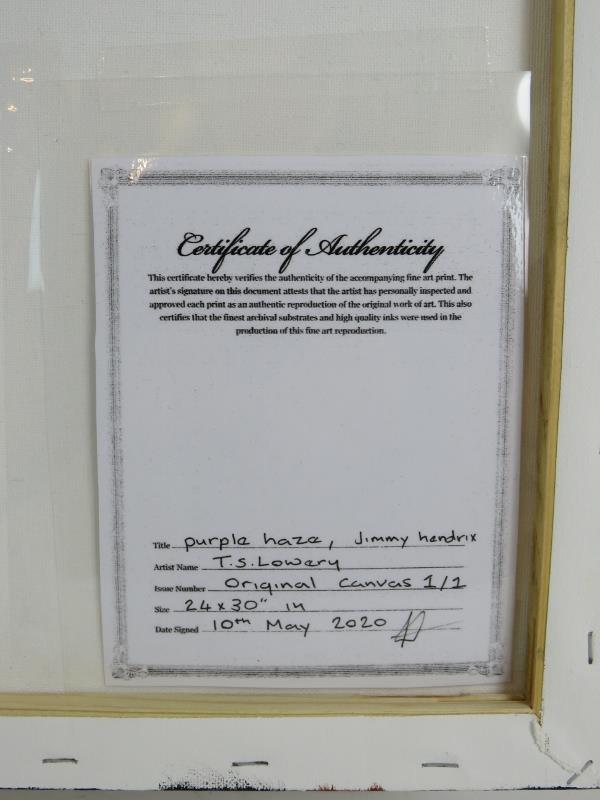 Certificate of Authenticity
This certificate hereby verifies the authenticity of the accompanying fine art print. The
artist's signature on this document attests that the artist has personally inspected and
approved each print as an authentic reproduction of the original work of art. This also
certifies that the finest archival substrates and high quality inks were used in the
production of this fine art reproduction.
Title purple haze, Jimmy hendrix
Artist Name T.S.Lowery
Issue Number Original canvas 1/1
Size 24 x 30" in
Date Signed 10th May 2020